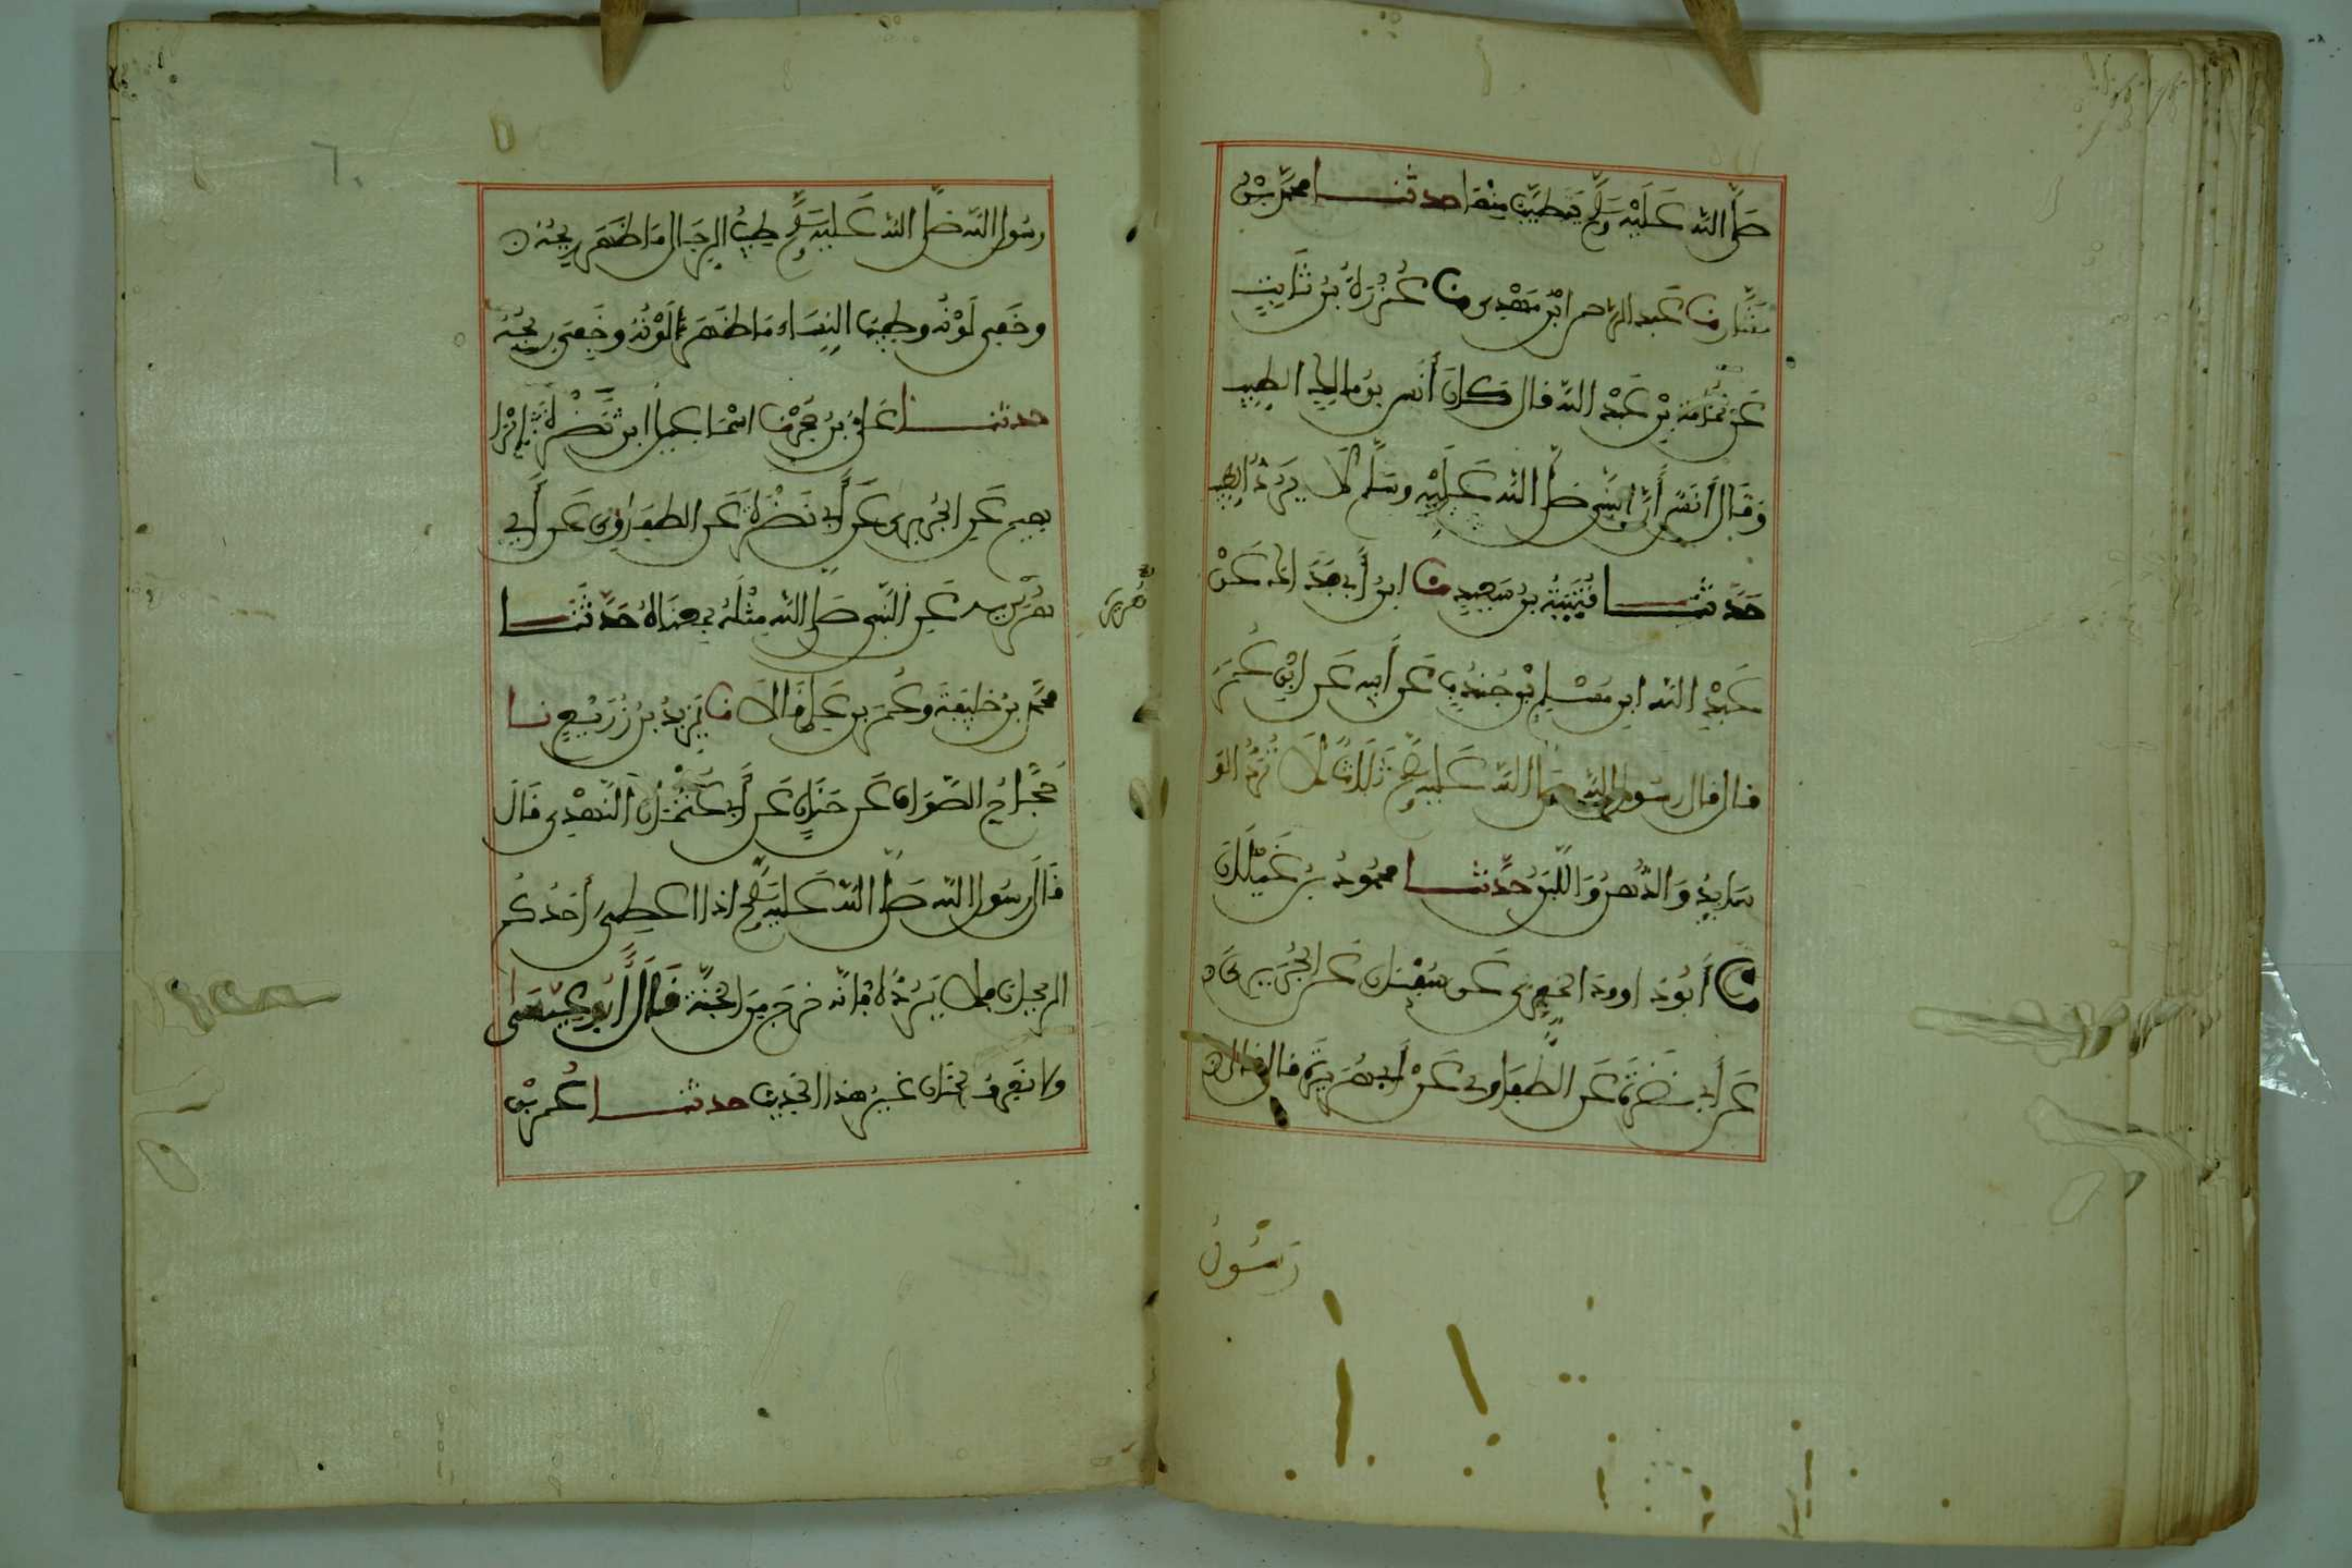 صَلَّى اللّٰه عَلَيْهِ وَسَلَّمَ يَتَطَيَّبُ مِنْهَا حدثنا محمّد بْن
مثَنَّى نا عَبد الرّحمن ابْن مَهْدِى نا عُزْرَةُ بْن ثَابِتٍ
عَن ثُمَامَة بْن عَبْدِ اللّه قال كانَ أَنَس بن مالك لا يرد الطِيب
وَقَالَ أَنَسٌ أَنَّ النبِى صَلّى اللّه عَلَيْهِ وَسَلَّم كَانَ لَا يَرُدُّ الطِيب
حَدَّثَنا قُتَيْبَة بنُ سَعِيدٍ نا ابن أَبِى فُدَيك عَنْ
عَبْدِ اللّه ابن مُسْلِم بْن جُنْدُبٍ عَن أَبِيه عَن ابْنِ عُمَرَ
قال قال رسُول اللّه صَلّى اللّه عَلَيْهِ وسلم ثَلَاثٌ لَا تُرَدُّ الو
سَايِدُ وَالدُّهنُ وَاللّبَنُ حَدَّثنا محمُودُ بْن غَيْلَانَ
نا أَبُو دَاوودَ الحَفَرِى عَن سُفْيَان عَن الجُرَيرِى عَن
عَن أَبِى نَضْرَةَ عَن الطُفَاوِى عَنْ أَبِى هُرَيْرَةَ قال قال
رَسُولُ
رسُول اللّه صَلّى اللّه عَلَيْهِ وَسَلَّم طِيبُ الرِجَالِ مَا ظَهَرَ رِيحُهُ
وخَفِىَ لَوْنُه وطِيبُ النِسَاءِ مَا ظَهَرَ لَوْنُهُ وخَفِىَ رِيحُهُ
حدثنا عَلِىُّ بْنُ حُجْرٍ نا اسْمَاعِيل ابن ابْرا
هِيم عَنِ الجُرَيرِى عَن أَبِى نَضْرَةَ عَن الطفَاوِى عَن أَبِى
هُرَيْرَة عَنِ النَّبِى صَلّى اللّه مِثْلَهُ بِمعنَاهُ حَدَّثَنَا
هُرَيْرَة
محمّد بْن خَلِيفَة وعُمَر بن عَلِى قَالَا نا يَزِيدُ بنُ زُرَيْعٍ نا
حَجَّاجُ الصَّوَاف عَن حَنَانٍ عَن أَبِى عُثْمَانَ النَّهْدِى قَالَ
قَالَ رسُول اللّه صَلّى اللّه عَلَيْهِ وسلم اذا اعطِىَ أَحَدُكُم
الرَيحَانَ فلا يَرُدُّهُ فَإنّه خَرَجَ مِنَ الجَنَّة قَالَ أَبُو عِيسَى
ولا نَعرِفُ لحَنَان غَيرَ هذا الحَدِيث حدثنا عُمر بْن